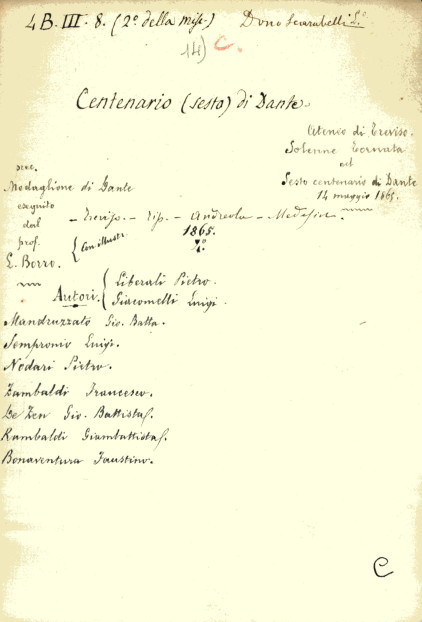 4 B. III. 8. (2º. della misc.) Dono Scarabelli L.º
14) C.
Centenario (sesto) di Dante.
Ateneo di Treviso.
Solenne Tornata
nel
Sesto centenario di Dante
14 maggio 1865.
Medaglione di Dante
eseguito
dal
prof.
L. Borro.
– Trevis. – Tip. – Andreola – Medesin.
1865.
(Con illustr.
Autori. { Liberali Pietro.
Giacomelli Luigi.
Mandruzzato Gio. Batta.
Sempronio Luigi.
Nodari Pietro.
Zambaldi Francesco.
De Zen Gio. Battista.
Rambaldi Giambattista.
Bonaventura Faustino.
C